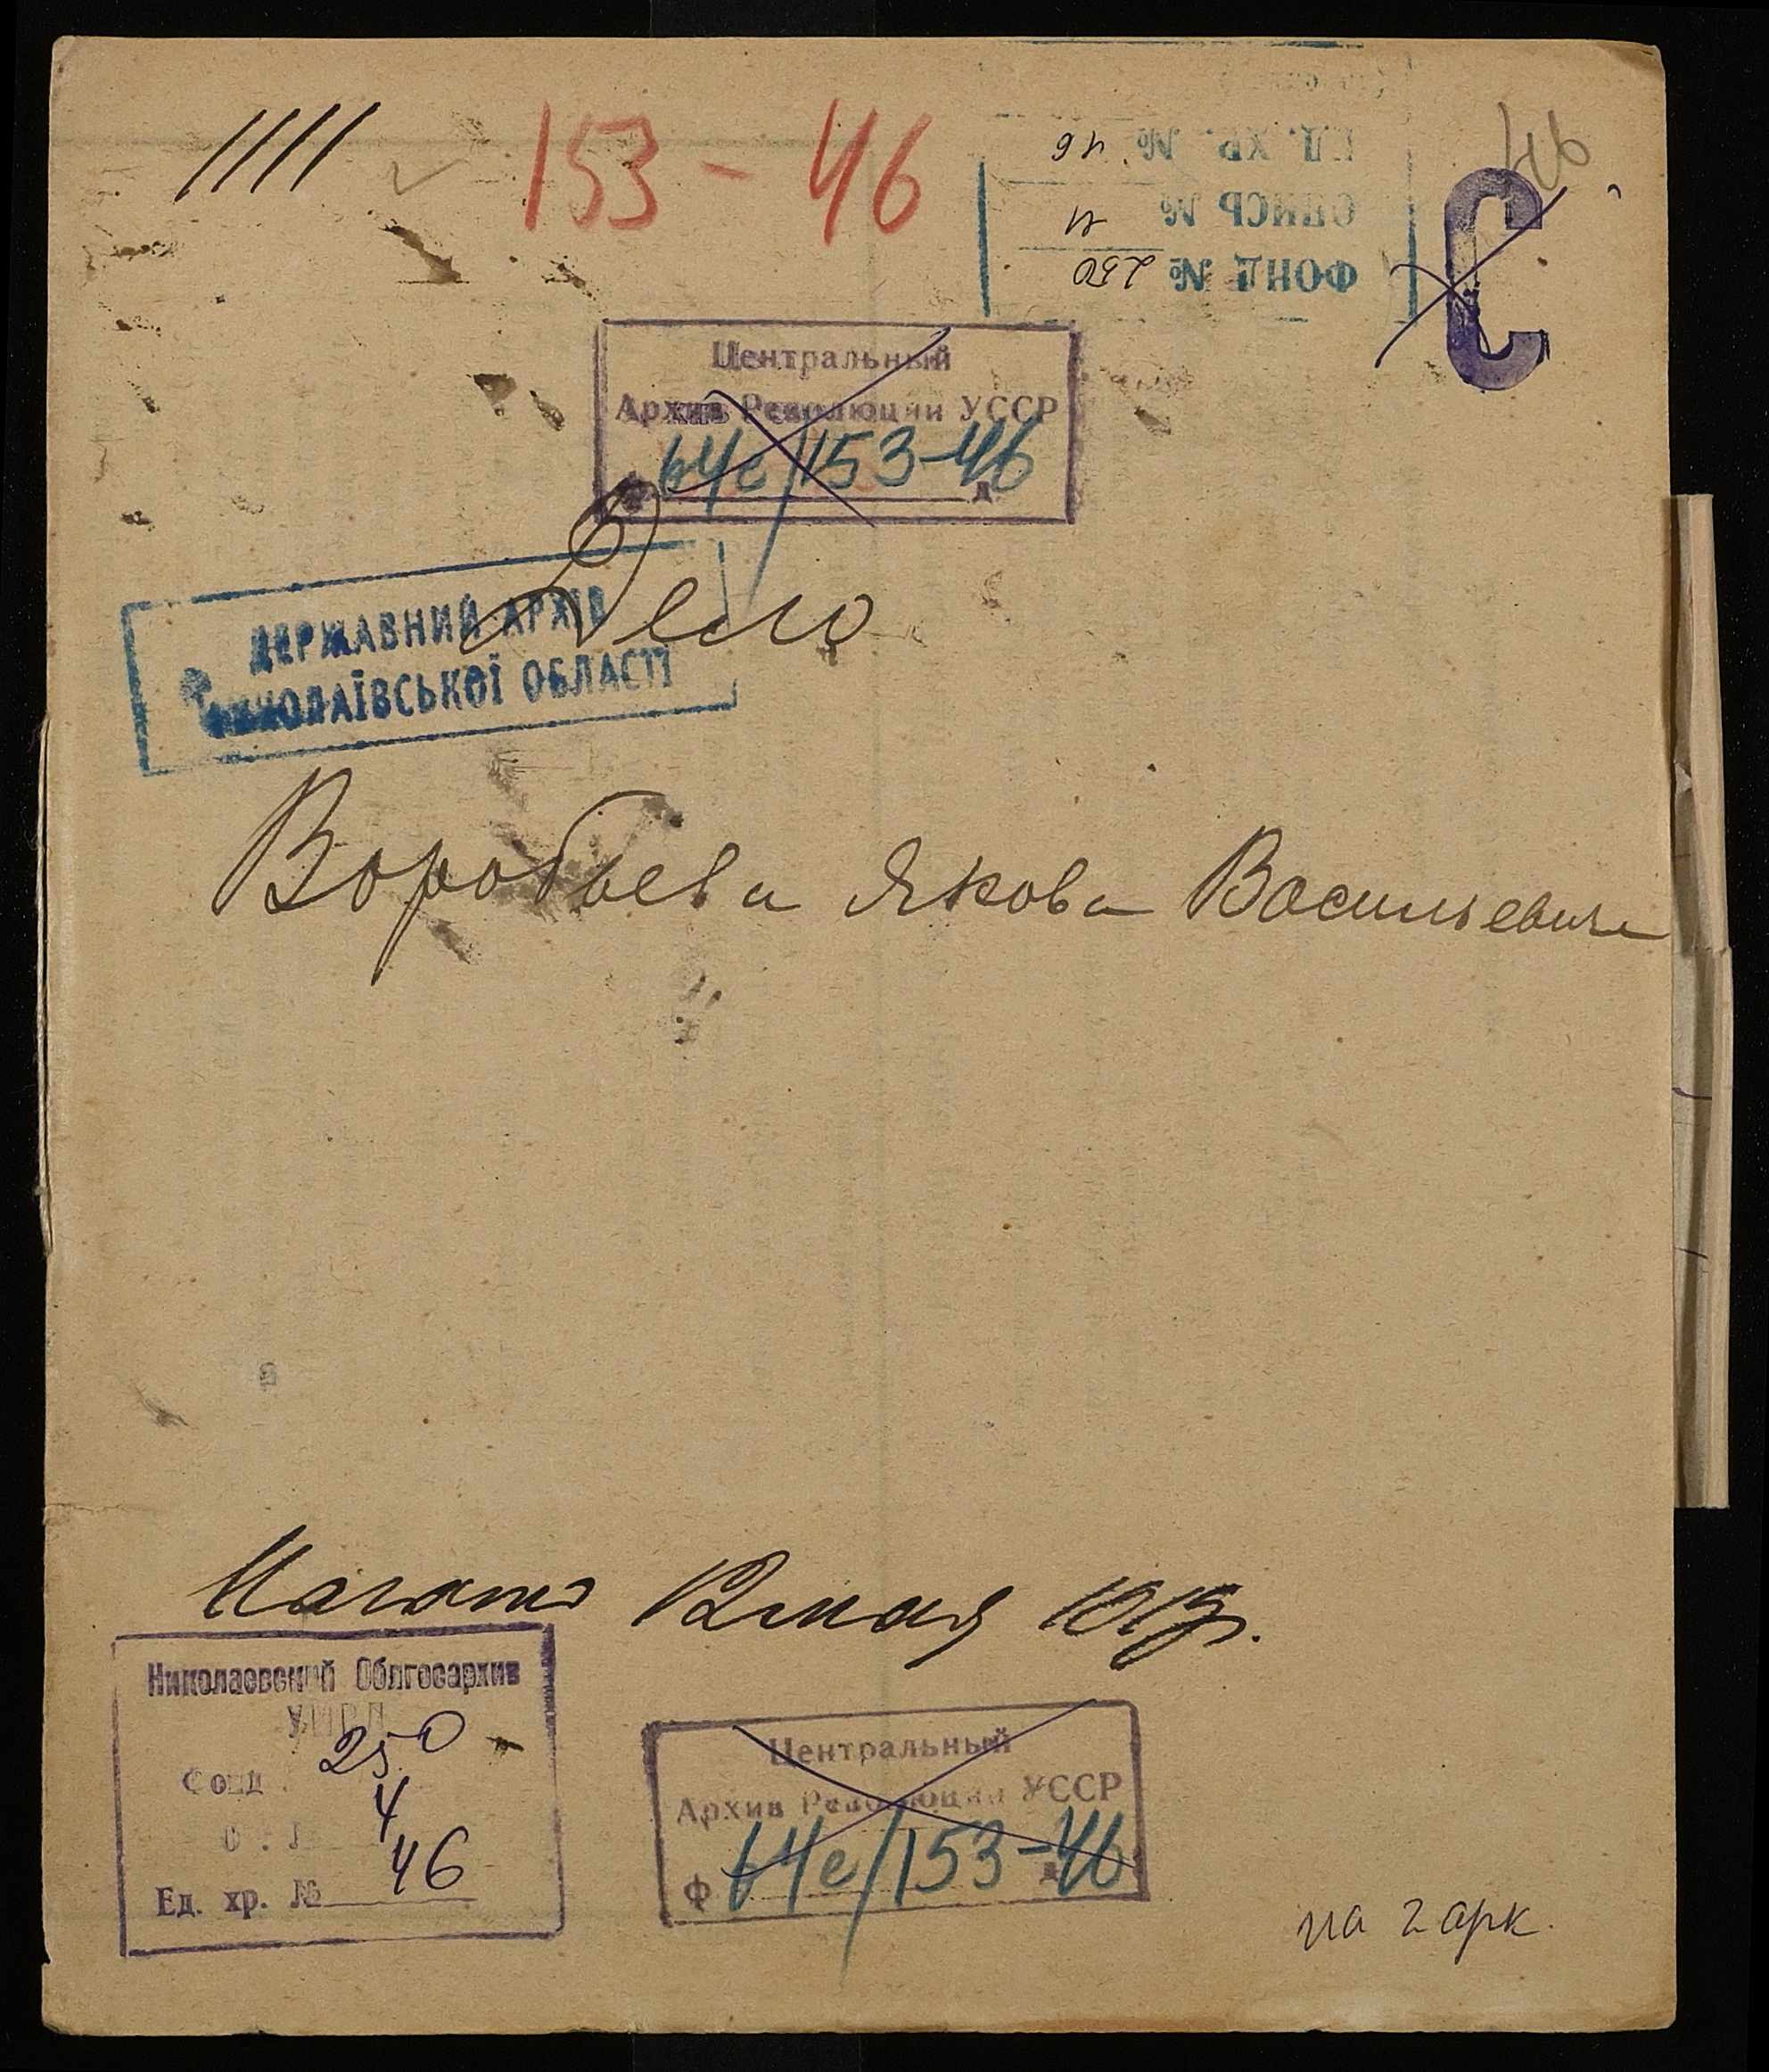 153 - 46
46
ЕД. ХР. № 46
ОПИСЬ № 4
ФОНД № 250
С
Центральный
Архив Революции УССР
64с/153-46
д
Дело
ДЕРЖАВНИЙ АРХІВ
МИКОЛАЇВСЬКОЇ ОБЛАСТІ
Воробьева Якова Васильевича
Начато 12 мая
Николаевский Облгосархив
УМВД
Фонд 250
4
Ед. хр. № 46
Центральный
Архив Революции УССР
Ф 64с/153-46
д
на 2 арк.